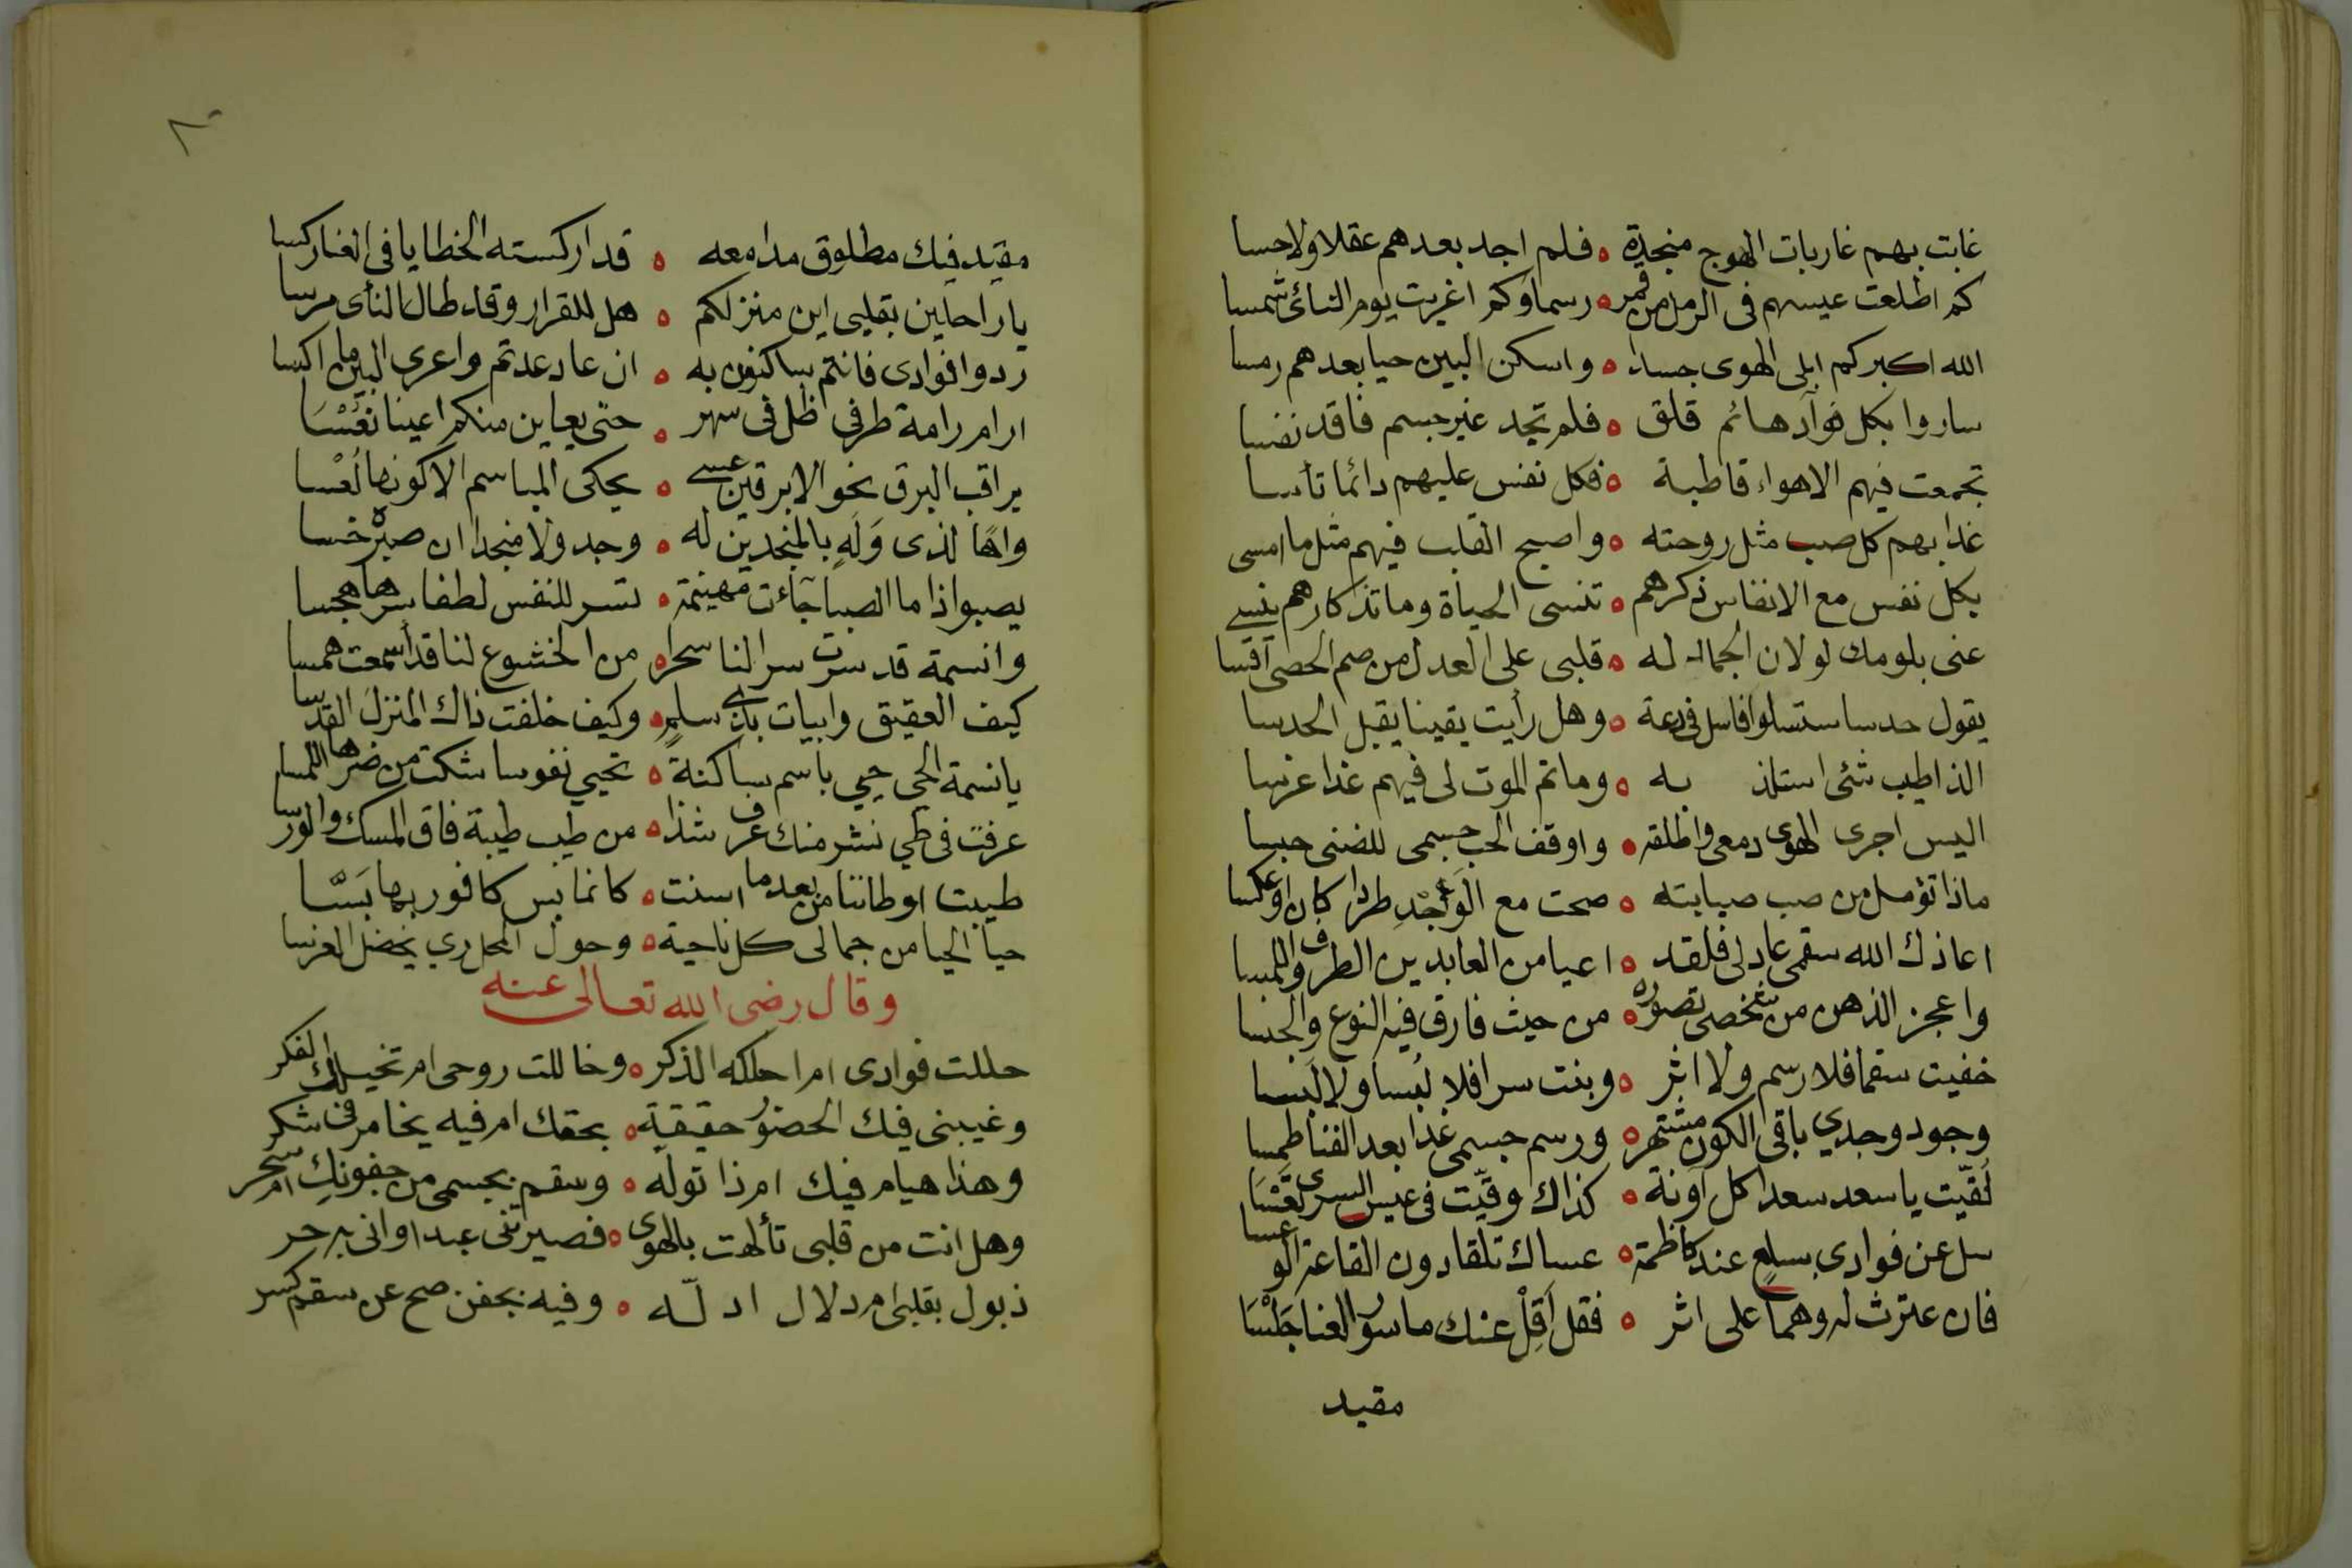 غابت بهم غاربات الهوج منجدة ه فلم اجد بعدهم عقلا ولا حسا
كم اطلعت عيسهم فى الرمل من قمر ه رسما وكم اغربت يوم النائ شمسا
الله اكبر كم ابلى الهوى جسدا ه واسكن البين حيا بعدهم رمسا
ساروا بكل فوآد هائم قلق ه فلم تجد غير جسم فاقد نفسا
تجمعت فيهم الاهواء قاطبة ه فكل نفس عليهم دائما تأسا
غدا بهم كل صب مثل روحته ه واصبح القلب فيهم مثل ما امسى
بكل نفس مع الانفاس ذكرهم ه تنسى الحياة وما تذكارهم ينسى
عنى بلومك لو لان الجماد له ه قلبى على العدل من صم الحصى آقسا
يقول حدسا ستسلوا فاسل فى دعة ه وهل رأيت يقينا يقبل الحدسا
الذ اطيب شئ استلذ به ه وما تم الموت لى فيهم غدا عرسا
اليس اجرى الهوى دمعى واطلقه ه واوقف الحب جسمى للضنى حبسا
ماذا تؤمل من صب صبابته ه صحت مع الوجد طردا كان او عكسا
اعاذك الله سقمى عادلى فلقد ه اعيا من العابدين الطرف واللمسا
واعجز الذهن من شخصى تصوره ه من حيث فارق فيه النوع والجنسا
خفيت سقما فلا رسم ولا اثر ه وبنت سرا فلا لبسا ولا لبسا
وجود وجدي باقى الكون مشتهر ه ورسم جسمى غدا بعد الفنا طمسا
لقيت يا سعد سعدا كل آونة ه كذاك وقيت فى عيس السرى تعسا
سل عن فوادى بسلع عند كاظمة ه عساك تلقاه دون القاعة الوعسا
فان عثرث له وهما على اثر ه فقل اقل عنك ماسور الغنا جلسا
مقيد
٢٠
مقيد فيك مطلوق مدامعه ه قد اركسته الخطايا فى الغنا ركسا
يا راحلين بقلبى اين منزلكم ه هل للقرار وقد طال النأى مرسا
ردوا فوادى فانتم ساكنون به ه ان عاد عدتم واعرى البين ما اكسا
ارام رامة طرفي ظل فى سهر ه حتى يعاين منكم اعينا نعسا
يراقب البرق نحو الابرقين عسى ه يحكى المباسم الا كونها لعسا
واها لذى وله بالمنجدين له ه وجد ولا منجدا ان صبره خسا
يصبوا اذا ما الصبا جآءت مهينمة ه تسر للنفس لطفا سرها هجسا
وانسمة قد سرت سرا لنا سحرا ه من الخشوع لنا قد اسمعت همسا
كيف العقيق وابيات بذى سلم ه وكيف خلفت ذاك المنزل القدسا
يا نسمة الحي حيي باسم ساكنة ه تحيي نفوسا شكت من ضرها اللمسا
عرفت فى طي نشر منك عرف شذا ه من طيب طيبة فاق المسك والورسا
طيبت اوطاننا من بعد ما اسنت ه كانما بس كافور بها بسا
حيا الحيا من جمالى كل ناحية ه وحول المحل ري يخضل الغرسا
وقال رضى الله تعالى عنه
حللت فوادى ام احلكه الذكر ه وخاللت روحى ام تخيلك الفكر
وغيبنى فيك الحضور حقيقة ه بحقك ام فيه يخامرنى شكر
وهذا هيام فيك ام ذا توله ه وسقم بجسمى من جفونك ام سحر
وهل انت من قلبى تألهت بالهوى ه فصيرتنى عبدا وانى به حر
ذبول بقلبى ام دلال ادله ه وفيه بجفن صح عن سقم كسر